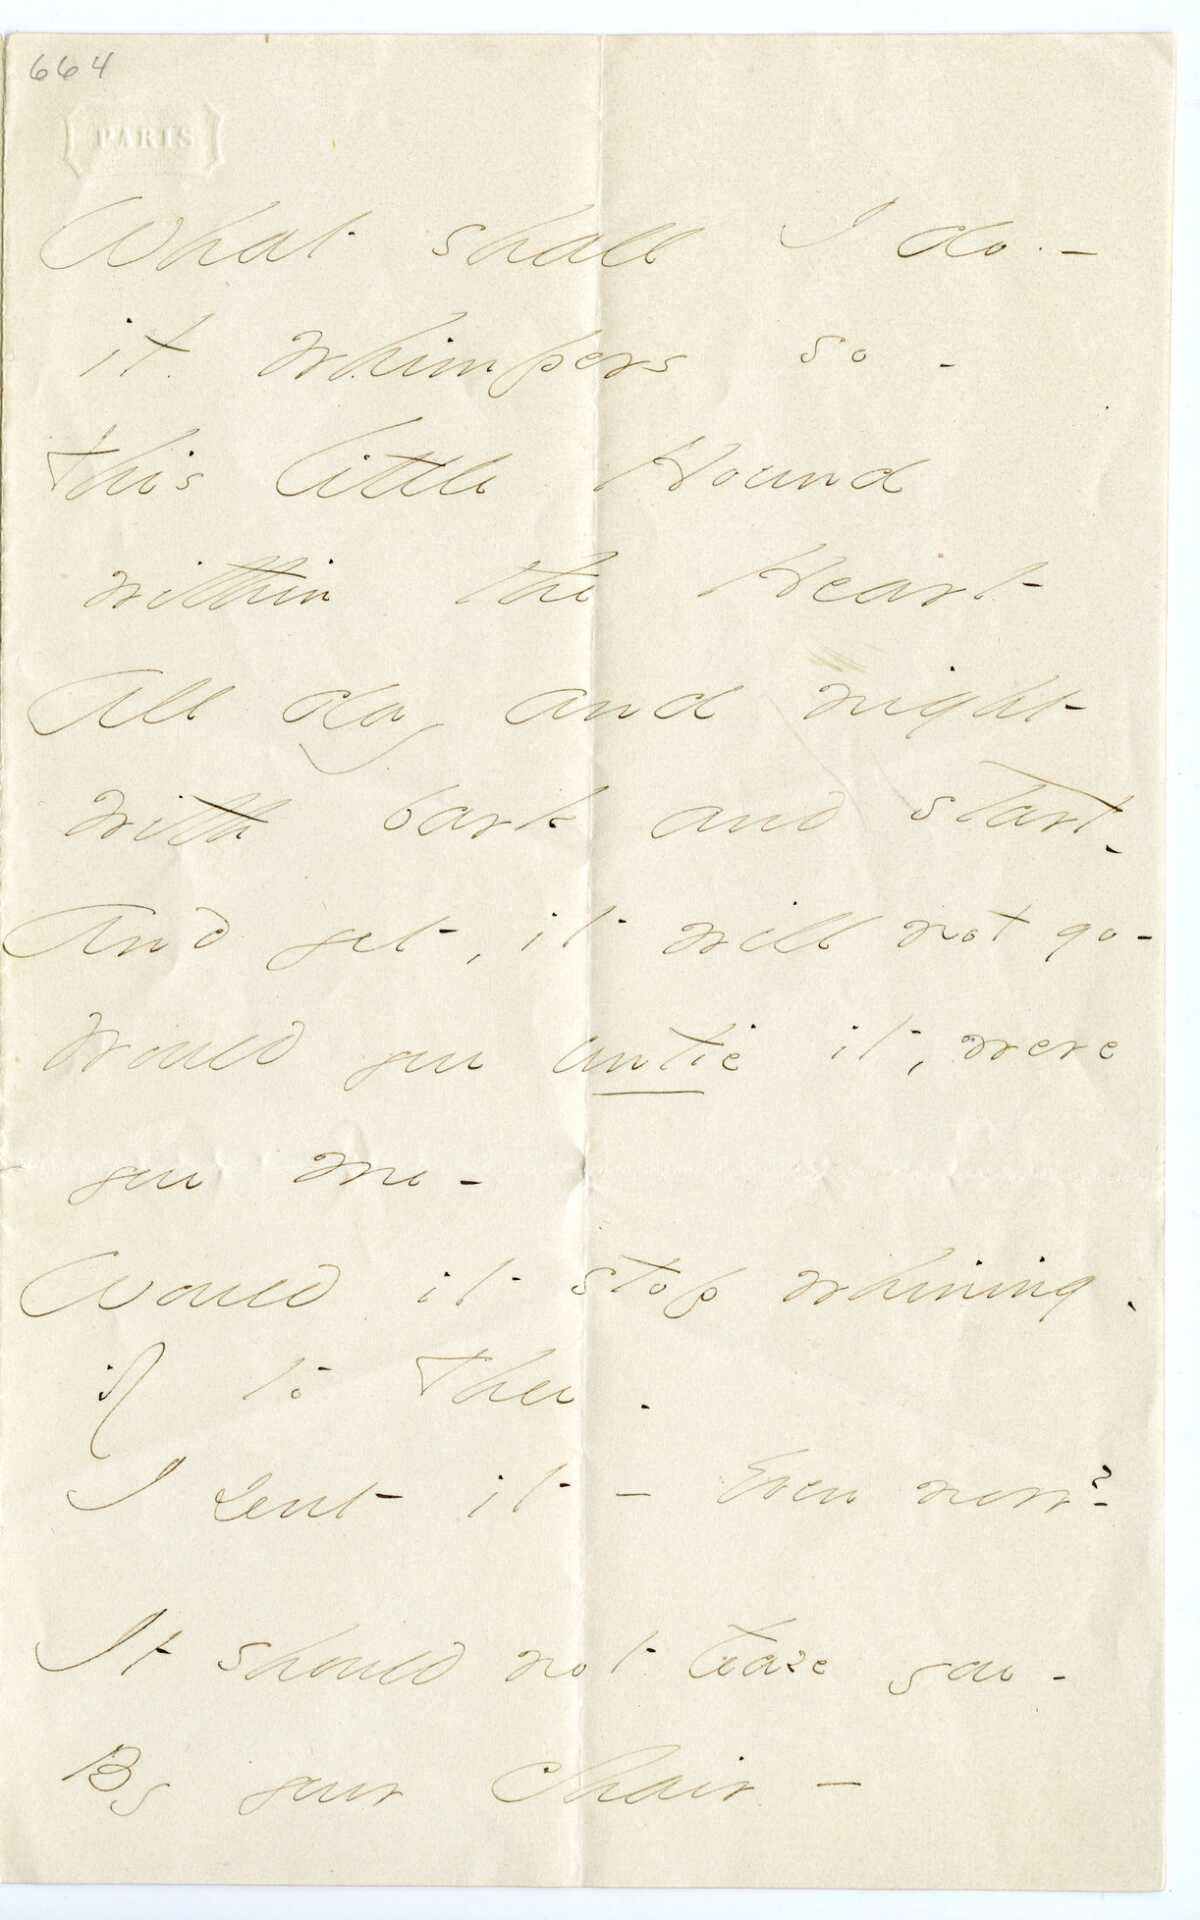 664
PARIS
What shall I do. –
it whimpers so –
this little Hound
within the Heart
All day and night
with bark and start –
And yet, it will not go –
Would you untie it, were
you me –
Would it stop whining –
if to Thee –
I sent it – Even now?
It should not teaze you –
By your Chair –